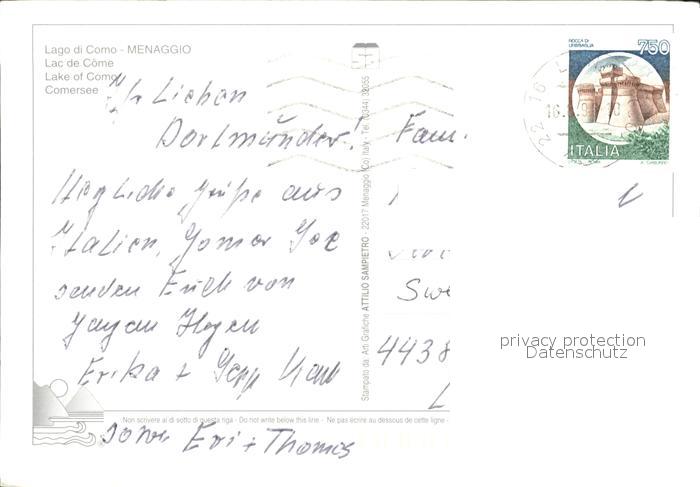 Lago di Como - MENAGGIO
Lac de Côme
Lake of Como
Comersee
Ihr Lieben
Dortmunder!
Herzliche Grüße aus
Italien, Comer See
senden Euch von
Erika + Sepp
sowie Evi + Thomas
Stampato da: Arti Grafiche ATTILIO SAMPIETRO - 22017 Menaggio (Co) Italy - Tel. (0344) 32055
Fam.
4438
ROCCA DI
URBISAGLIA
750
ITALIA
Non scrivere al di sotto di questa riga - Do not write below this line - Ne pas écrire au dessous de cette ligne -
privacy protection
Datenschutz